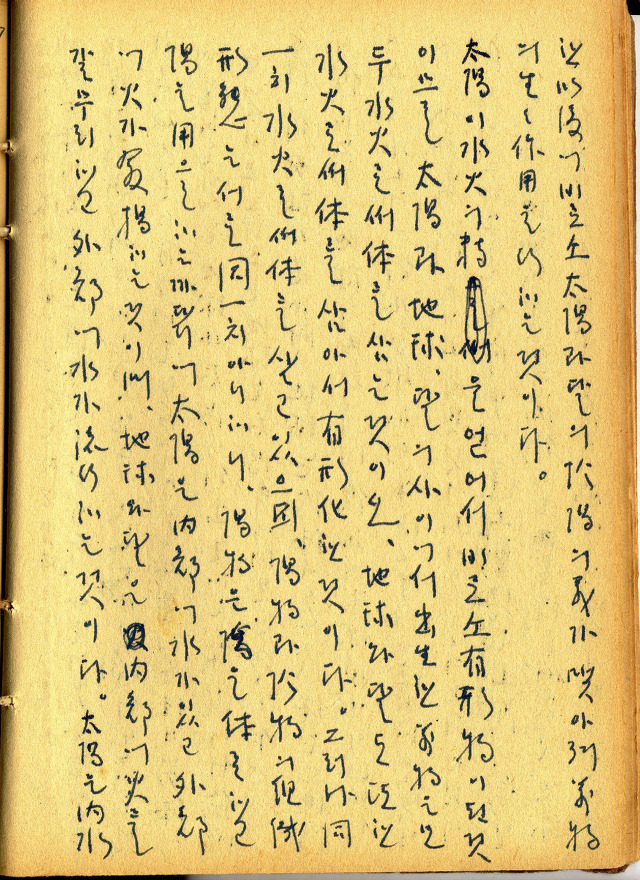 한 以後에 비로소 太陽과 달의 陰陽의 義가 맺아저 萬物
의 生生作用을 行하는 것이다。
太陽이 水火의 精 을 얻어서 비로소 有形物이 된 것
이므로 太陽과 地球、달의 사이에서 出生한 萬物은 모
두 水火로써 体를 삼는 것이오、地球와 달도 또한
水火로써 体를 삼아서 有形化한 것이다。그러나 同
一히 水火로써 体를 삼고 있으되、陽物과 陰物의 組織
形態는 서로 同一치 아니하니、陽物은 陰을 体로 하고
陽을 用으로 하는 까닭에 太陽은 內部에 水가 있고 外部
에 火가 發揚하는 것이며、地球와 달은 內部에 火를
갈무리하고 外部에 水가 流行하는 것이다。太陽은 內水